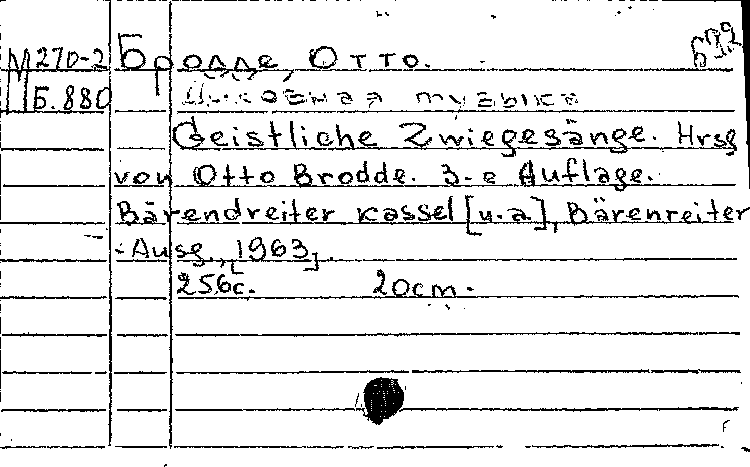 М270-2 Бродде, Отто.
Б.880 Духовная музыка
Geistliche Zwiegesänge. Hrsg
von Otto Brodde. 3-e Auflage.
Bärendreiter Kassel [u.a], Bärenreiter
-Ausg., [1963].
256с. 20cm.